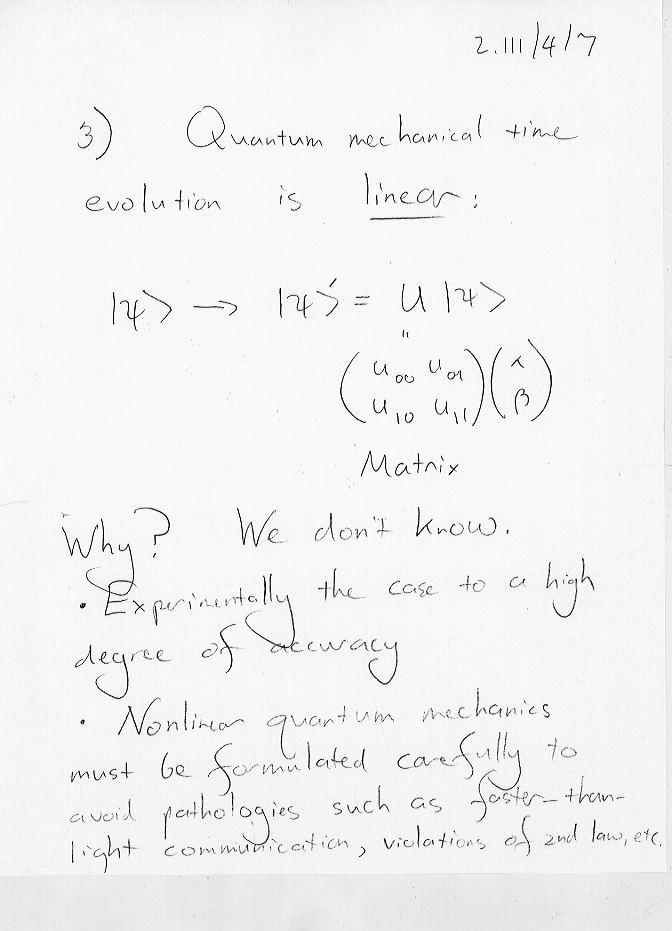 2.111/4/7
3) Quantum mechanical time
evolution is linear:
|ψ> → |ψ>' = U |ψ>
"
(u00 u01) (α)
(u10 u11) (β)
Matrix
Why? We don't know.
• Experimentally the case to a high
degree of accuracy
• Nonlinear quantum mechanics
must be formulated carefully to
avoid pathologies such as faster-than-
light communication, violations of 2nd law, etc.